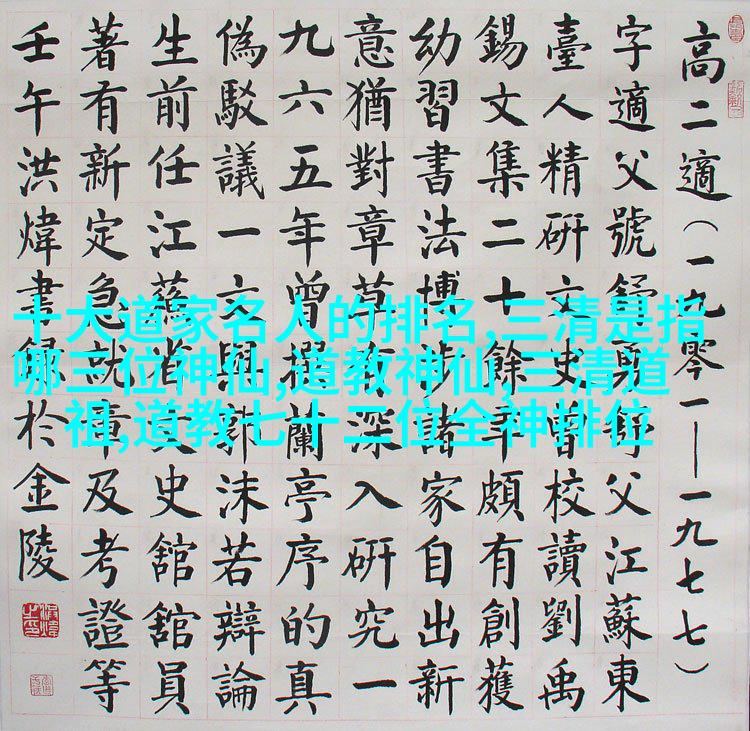 十大道家名人的排名,三清是指
哪三位神仙,道教神仙,三清道
祖,道教七十二位全神排位
高二適(一九零一—一九七七)
字適父號舒舒父江蘇東
臺人精研文史曾校讀劉禹
錫文集二十餘年頗有創獲
幼習書法博涉諸家自出新
意猶對章草有深入研究一
九六五年曾撰蘭亭序的真
偽駁議一文與郭沫若辯論
生前任江蘇省文史館館員
著有新定急就章及考證等
壬午洪煒書錄於金陵